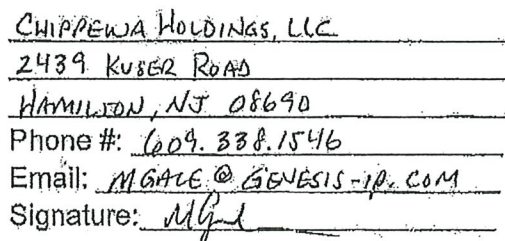 CHIPPEWA HOLDINGS, LLC
2439 KUSER ROAD
HAMILTON, NJ 08690
Phone #: 609.338.1546
Email: MGALE@GENESIS-IP.COM
Signature: